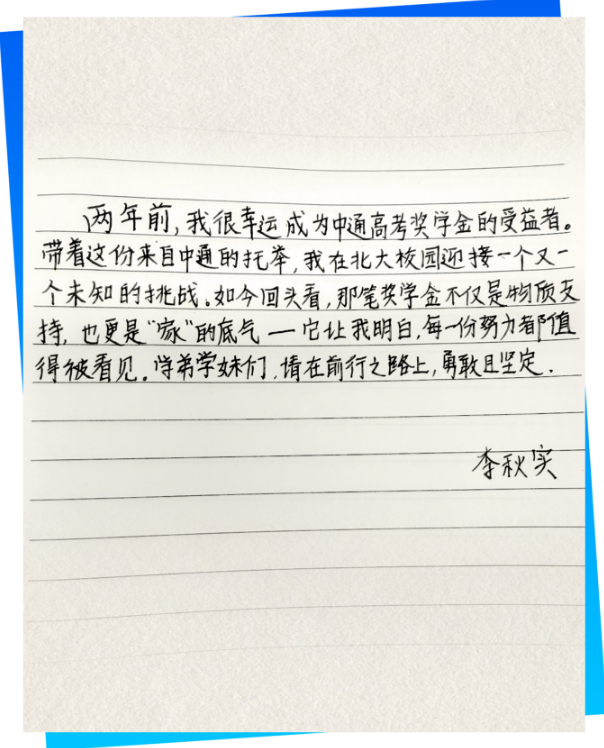 两年前,我很幸运成为中通高考奖学金的受益者。
带着这份来自中通的托举,我在北大校园迎接一个又一
个未知的挑战。如今回头看,那笔奖学金不仅是物质支
持,也更是“家”的底气—它让我明白,每一份努力都值
得被看见。学弟学妹们,请在前行之路上,勇敢且坚定.
李秋实